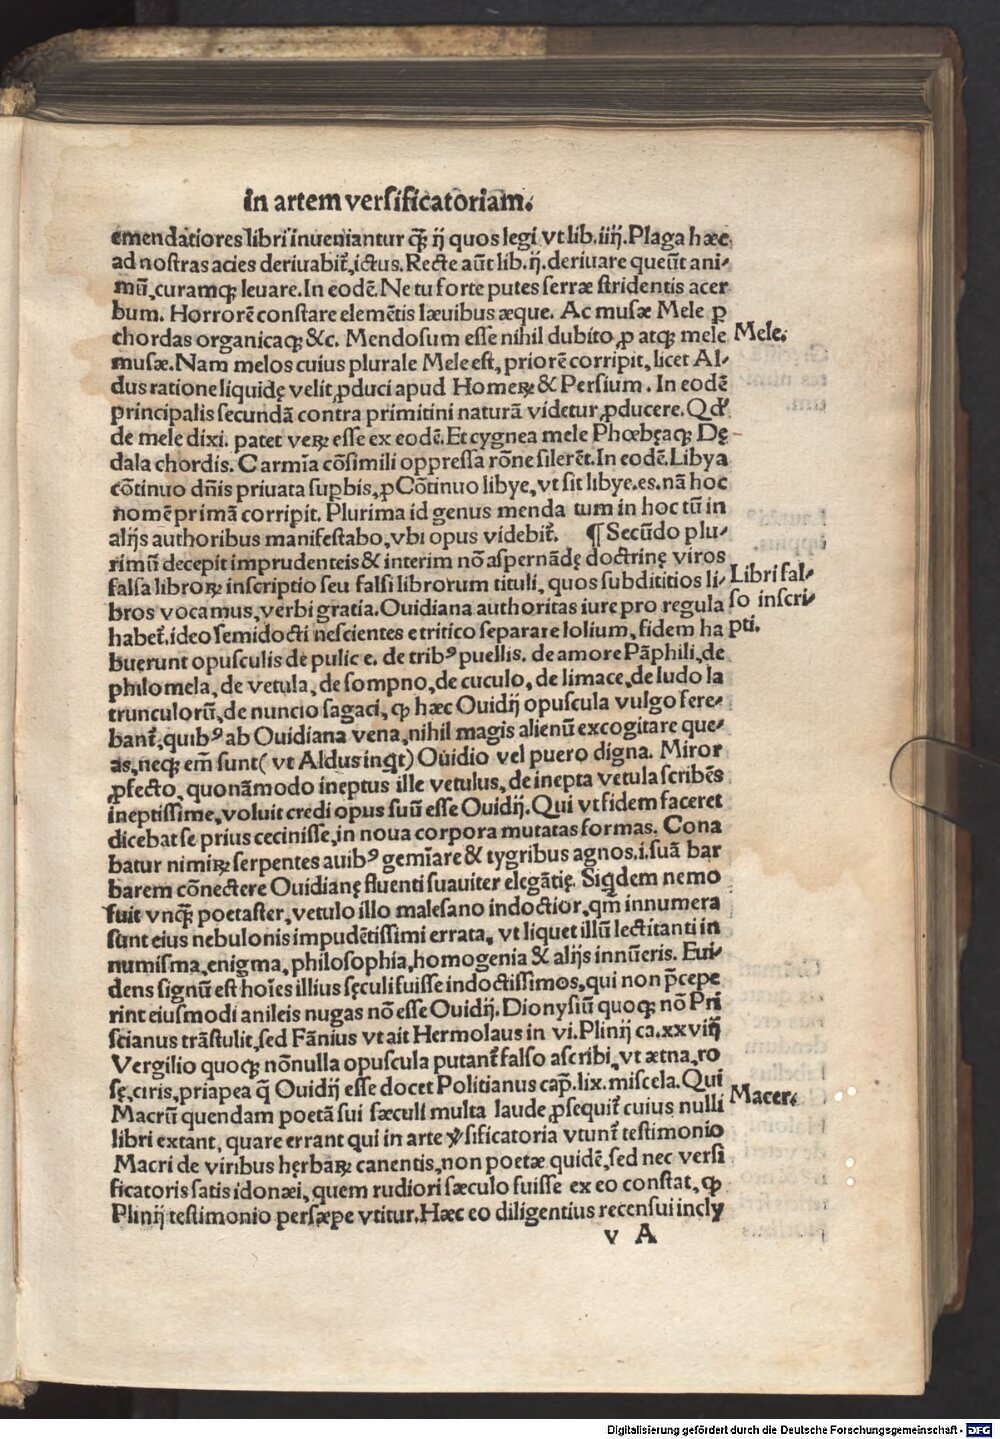 In artem versificatoriam.
emendatiores libri inueniantur q̃ꝫ ij quos legi vt lib. iiij. Plaga hæc
ad nostras acies deriuabit᷑, ictus. Recte aũt lib. ij. deriuare queũt ani⸗
mũ, curamqꝫ leuare. In eodẽ. Ne tu forte putes serræ stridentis acer
bum. Horrorẽ constare elemẽtis læuibus æque. Ac musæ Mele ꝑ
chordas organicaqꝫ &c. Mendosum esse nihil dubito, ꝓ atqꝫ mele
Mele.
musæ. Nam melos cuius plurale Mele est, priorẽ corripit, licet Al⸗
dus ratione liquidę velit ꝓduci apud Homeꝝ & Persium. In eodẽ
principalis secundã contra primitini naturã videtur ꝓducere. Qđ
de mele dixi. patet veꝝ esse ex eodẽ. Et cygnea mele Phœbęaqꝫ Dę
dala chordis. Carmĩa cõsimili oppressa rõne silerẽt. In eodẽ. Libya
cõtinuo dñis priuata suꝑbis, ꝓ Cõtinuo libye, vt sit libye. es. nã hoc
nomẽ primã corripit. Plurima id genus menda tum in hoc tũ in
alijs authoribus manifestabo, vbi opus videbit᷑. ¶ Secũdo plu⸗
rimũ decepit imprudenteis & interim nõ aspernãdę doctrinę viros
falsa libroꝝ inscriptio seu falsi librorum tituli, quos subdititios li⸗
Libri fal⸗
bros vocamus, verbi gratia. Ouidiana authoritas iure pro regula
so inscri⸗
habet᷑. ideo semidocti nescientes e tritico separare lolium, fidem ha
pti.
buerunt opusculis de pulice. de tribꝰ puellis. de amore Pãphili, de
philomela, de vetula, de sompno, de cuculo, de limace, de ludo la
trunculorũ, de nuncio sagaci, ꝙ hæc Ouidij opuscula vulgo fere⸗
bant᷑, quibꝰ ab Ouidiana vena, nihil magis alienũ excogitare que⸗
as, neqꝫ em̃ sunt (vt Aldus inq̃t) Ouidio vel puero digna. Miror
ꝓfecto, quonãmodo ineptus ille vetulus, de inepta vetula scribẽs
ineptissime, voluit credi opus suũ esse Ouidij. Qui vt fidem faceret
dicebat se prius cecinisse, in noua corpora mutatas formas. Cona
batur nimiꝝ serpentes auibꝰ gemĩare & tygribus agnos. i. suã bar
barem cõnectere Ouidianę fluenti suauiter elegãtię. Siq̃dem nemo
fuit vnq̃ꝫ poetaster, vetulo illo malesano indoctior, qm̃ innumera
sunt eius nebulonis impudẽtissimi errata, vt liquet illũ lectitanti in
numisma, enigma, philosophia, homogenia & alijs innũeris. Eui⸗
dens signũ est hoĩes illius sęculi fuisse indoctissimos, qui non p̃cepe
rint eiusmodi anileis nugas nõ esse Ouidij. Dionysiũ quoqꝫ nõ Pri
scianus trãstulit, sed Fãnius vt ait Hermolaus in vi. Plinij ca. xxviij
Vergilio quoqꝫ nõnulla opuscula putant᷑ falso ascribi, vt ætna, ro
sę, ciris, priapea q̃ Ouidij esse docet Politianus cap̃. lix. miscela. Qui
Macrũ quendam poetã sui sæculi multa laude ꝓsequit᷑ cuius nulli
Macer.
libri extant, quare errant qui in arte v̕sificatoria vtunt᷑ testimonio
Macri de viribus hębaꝝ canentis, non poetæ quidẽ, sed nec versi
ficatoris satis idonæi, quem rudiori sæculo fuisse ex eo constat, ꝙ
Plinij testimonio persæpe vtitur. Hæc eo diligentius recensui incly
v A
Digitalisierung gefördert durch die Deutsche Forschungsgemeinschaft - DFG